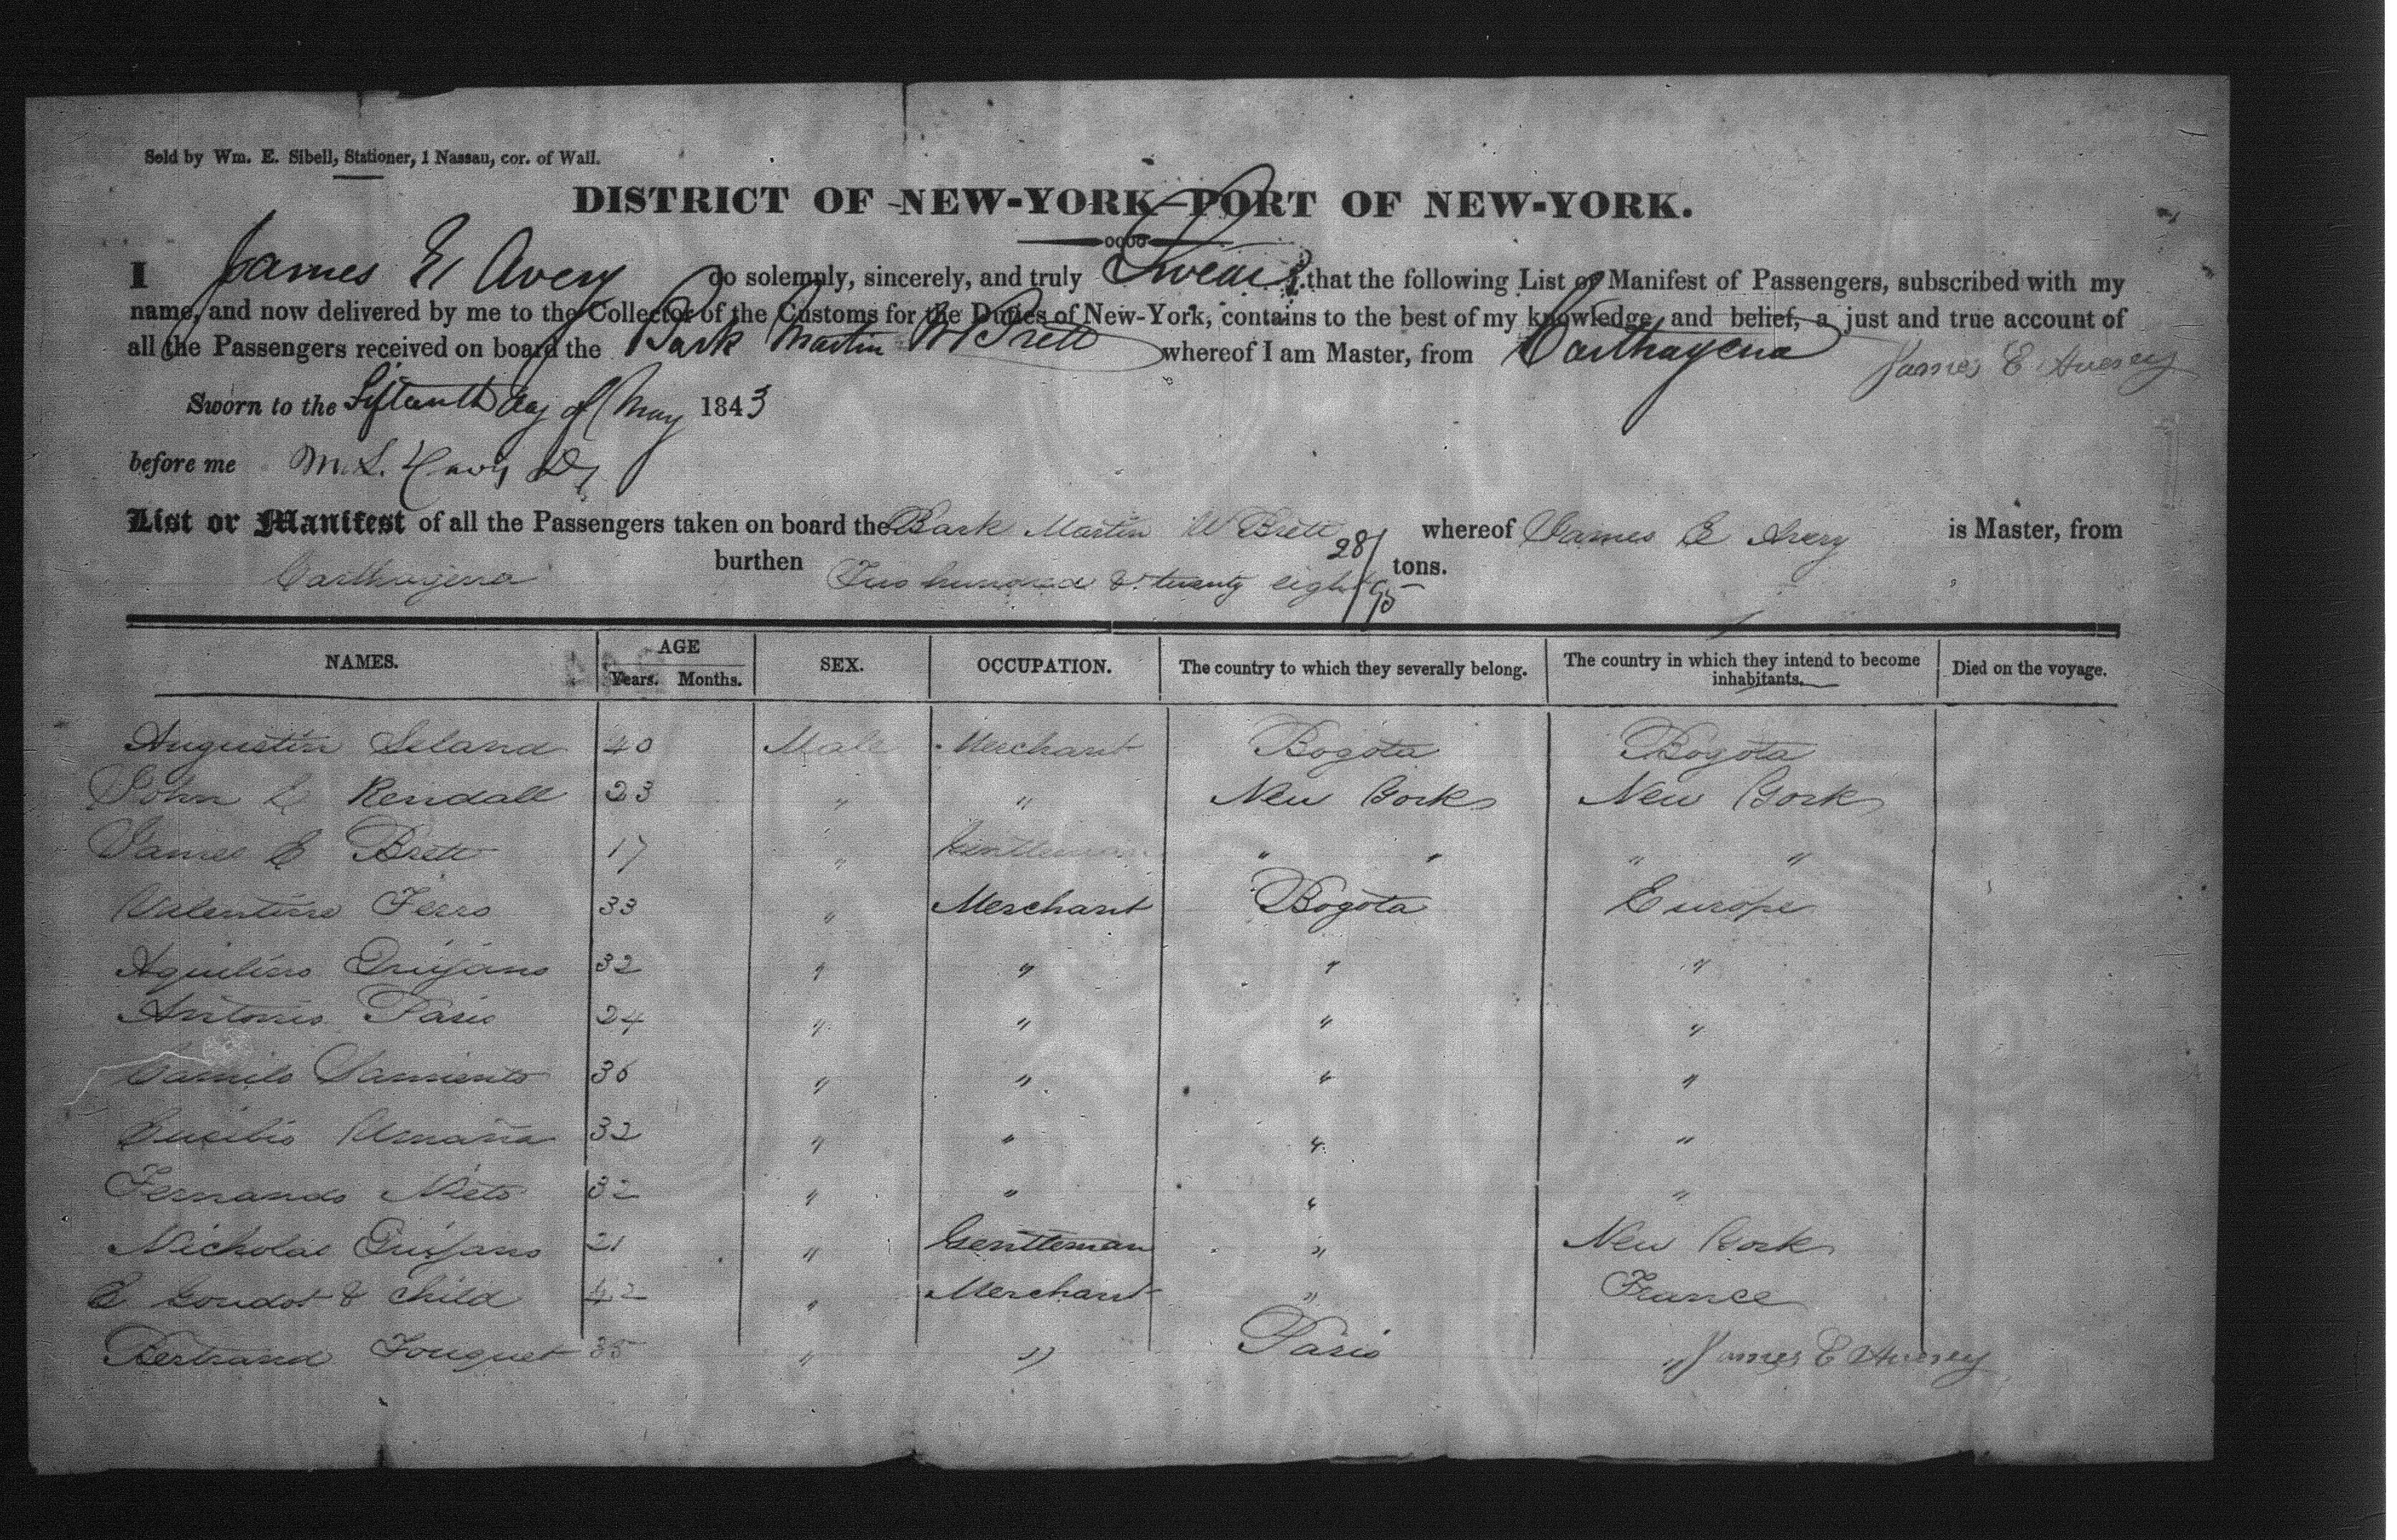 Sold by Wm. E. Sibell, Stationer, 1 Nassau, cor. of Wall.
DISTRICT OF NEW-YORK—PORT OF NEW-YORK.
I James E. Avery do solemnly, sincerely, and truly Swear that the following List or Manifest of Passengers, subscribed with my
name, and now delivered by me to the Collector of the Customs for the Duties of New-York, contains to the best of my knowledge and belief, a just and true account of
all the Passengers received on board the Bark Martin W Brett whereof I am Master, from Carthagena
James E Avery
Sworn to the Fifteenth day of May 1843
before me M. L.
List or Manifest of all the Passengers taken on board the Bark Martin W Brett whereof James E Avery is Master, from
Carthagena burthen Two hundred & twenty eight 28/95 tons.
NAMES. AGE Years. Months. SEX. OCCUPATION. The country to which they severally belong. The country in which they intend to become inhabitants. Died on the voyage.
Augustin 40 Male Merchant Bogota Bogota
John Rendall 23 " " New York New York
James E Brett 17 " Gentleman " " " "
Valentine Ferro 33 " Merchant Bogota Europe
Aquilino Quijano 32 " " " "
Antonio Paris 24 " " " "
Camilo Sarmiento 36 " " " "
Eusebio Umaña 32 " " " "
Fernando Nieto 32 " " " "
Nicholas Quijano 21 " Gentleman " New York
Goudot & child 42 " Merchant " France
Bertrand Fouquet 35 " " Paris "
James E Avery